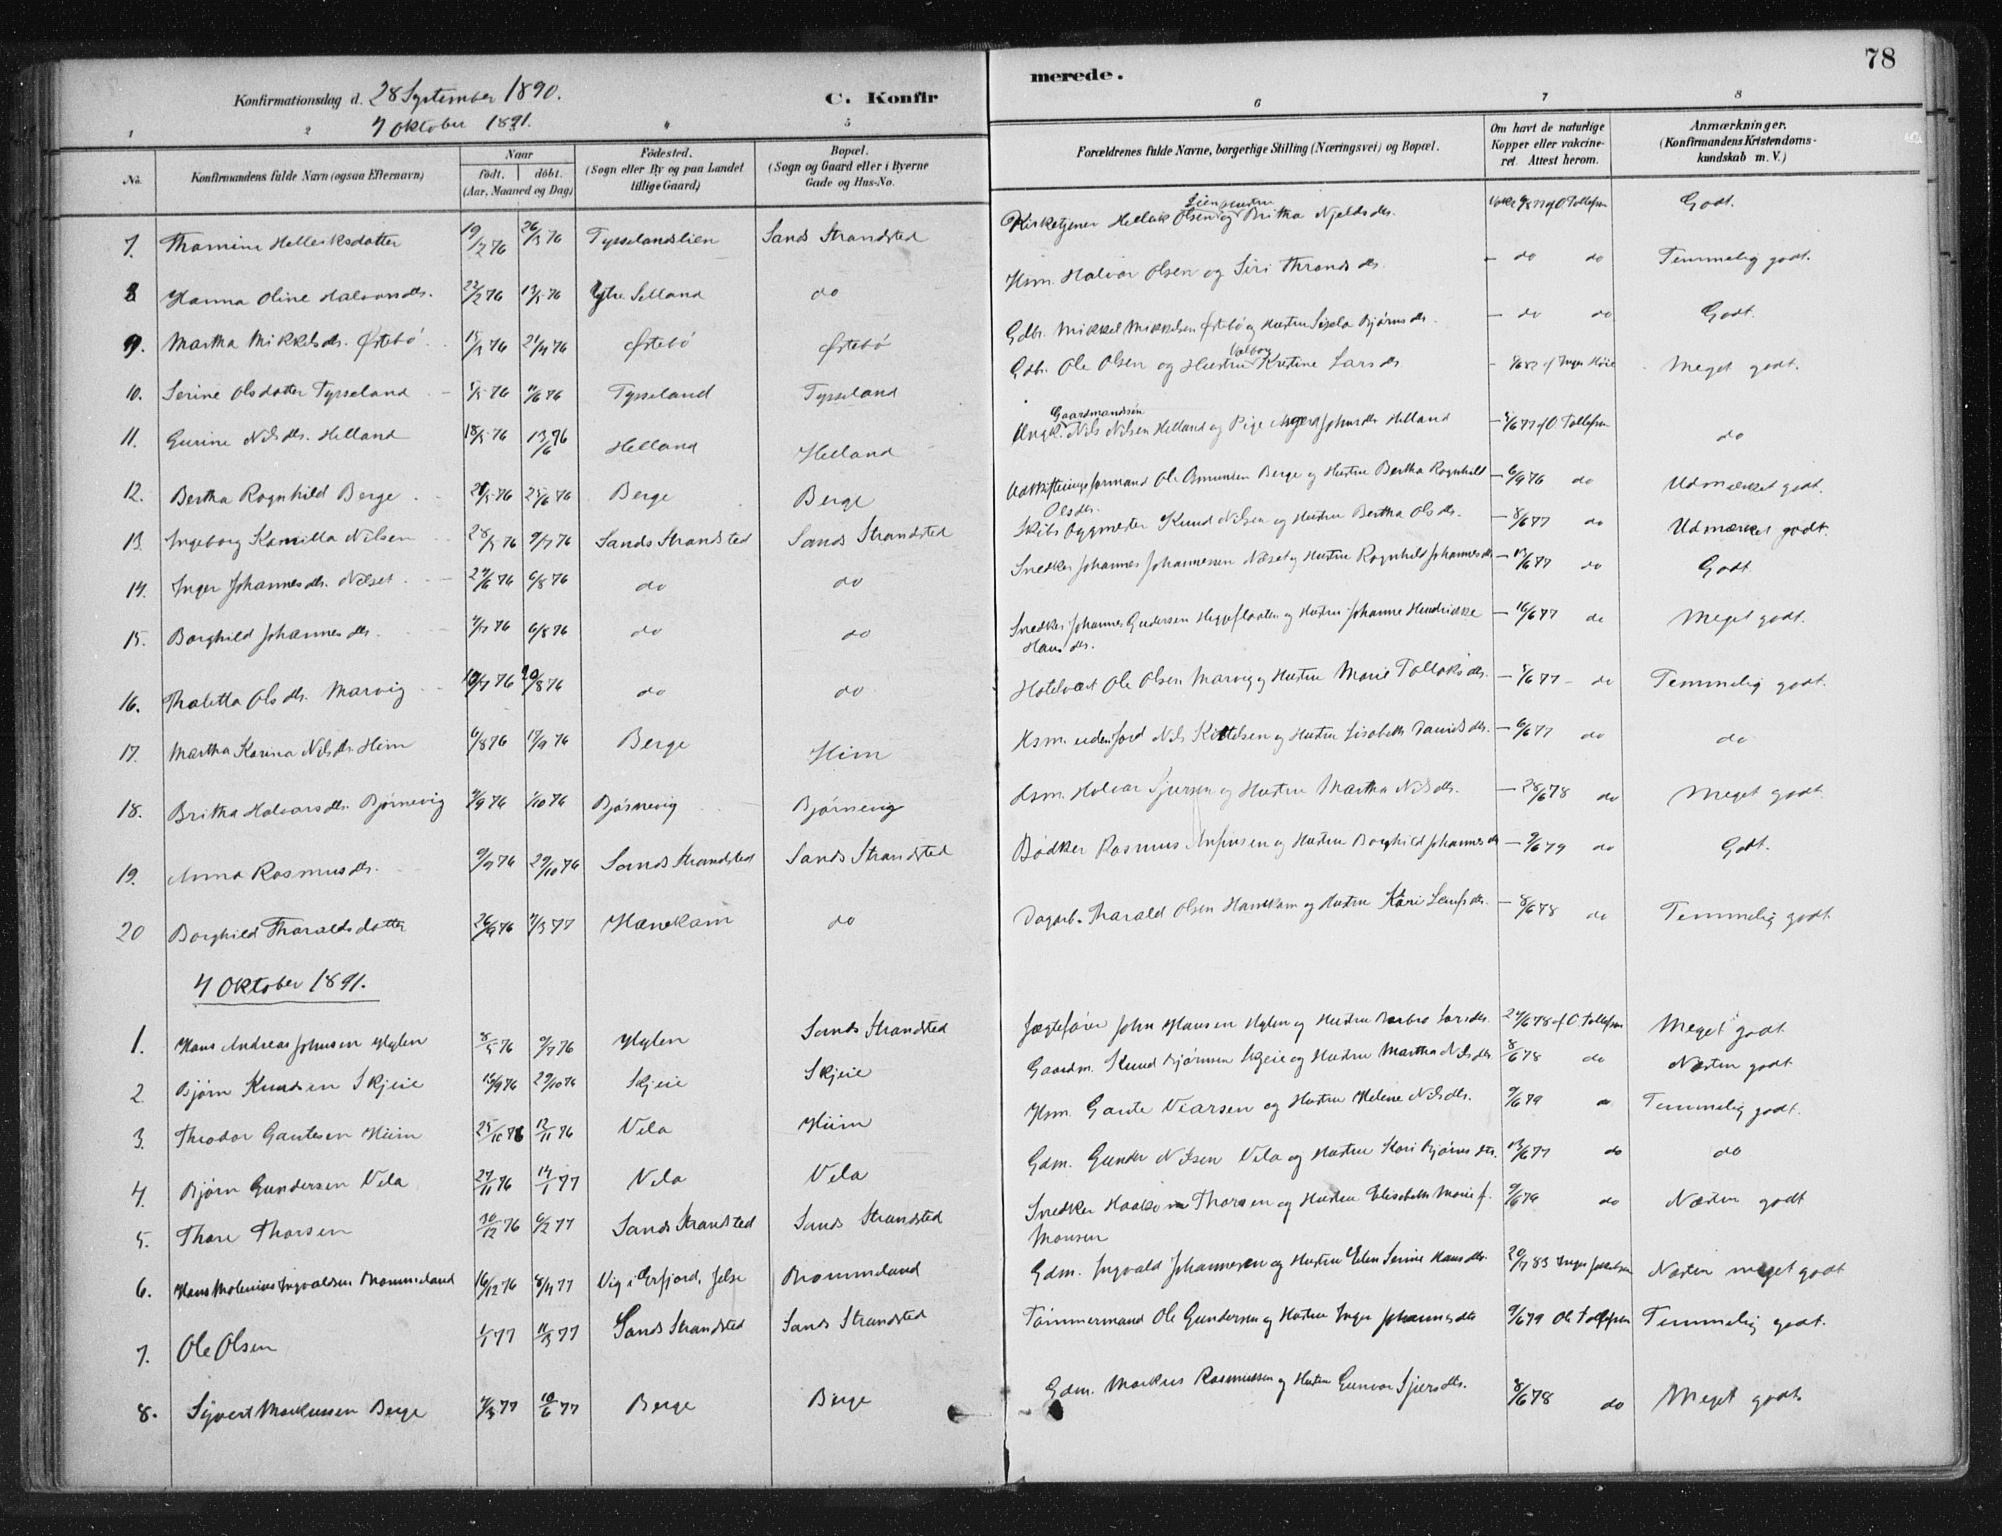 78
Konfirmationsdag d. 28 September 1890.
4 Oktober 1891.
C. Konfir
merede.
1 2 4 5 6 7 8
No.
Konfirmandens fulde Navn (ogsaa Efternavn)
Naar
født. döbt.
(Aar, Maaned og Dag)
Födested.
(Sogn eller By og paa Landet
tillige Gaard)
Bopæl.
(Sogn og Gaard eller i Byerne
Gade og Hus-No.
Forældrenes fulde Navne, borgerlige Stilling (Næringsvei) og Bopæl.
Om havt de naturlige
Kopper eller vakcine-
ret. Attest herom.
Anmærkninger.
(Konfirmandens Kristendoms-
kundskab m. V.)
7. Thomine Helleiksdatter 19/2 76 26/3 76 Tysselandslien Sands Strandsted Kirketjener Helleik Olsen Lien og Hustru Britha Njeldsdtr. Godt.
8 Hanna Oline Halvorsdtr. 22/2 76 Ytre Selland do Hsm. Halvor Olsen og Siri Thrandsdtr. - do do Temmelig godt.
9. Martha Mikkelsdtr. Østebö 21/4 76 Østebö Østebö Gdbr. Mikkel Mikkelsen Østebö og Hustru Sisela Bjørnsdtr. - do do Godt.
10. Serine Olsdatter Tysseland 11/6 76 Tysseland Tysseland Gdbr. Ole Olsen og Hustru Valborg Kristine Larsdtr. Meget godt.
11. Gurine Nilsdtr. Helland 18/5 76 13/6 76 Helland Helland Ungk. Gaardmandssön Nils Nilsen Helland og Pige Johnsdtr Helland do
12. Bertha Rognhild Berge 21/5 76 25/6 76 Berge Berge Udskiftningsformand Ole Asmunsen Berge og Hustru Bertha Rognhild Olsdtr. - 6/9 76 do Udmærket godt.
13. Ingeborg Kamilla Nilsen 28/5 76 9/7 76 Sands Strandsted Sands Strandsted Skibsbygmester Knud Nilsen og Hustru Bertha Olsdtr. - 8/6 77 do Udmærket godt.
14. Inger Johannesdtr. Næset 24/6 76 6/8 76 do do Snedker Johannes Johannessen Næset og Hustru Rognhild Johannesdtr - 13/6 77 do Godt.
15. Borghild Johannesdtr. 6/8 76 do do Snedker Johannes Gudersen Heggeflaaten og Hustru Johanne Hendrikke Hansdtr. - 16/6 77 do Meget godt.
16. Thaletta Olsdtr. Marvig 20/8 76 do do Hotelvært Ole Olsen Marvig og Hustru Marie Tollaksdtr. - 5/6 77 - do Temmelig godt.
17. Martha Karina Nilsdtr. Hiim 6/8 76 17/9 76 Berge Hiim Hsm. uden Jord Nils Kittelsen og Hustru Lisabeth Davidsdtr. - 6/6 77 do do
18. Britha Halvorsdtr. Bjørnevig 1/10 76 Bjørnevig Bjørnevig Hsm. Halvor Sjursen og Hustru Martha Nilsdtr. - 28/6 78 do Meget godt
19. Anna Rasmusdtr. 9/9 76 29/10 76 Sands Strandsted Sands Strandsted Bödker Rasmus Anfinsen og Hustru Borghild Johannesdtr - 9/6 79 do Godt.
20 Borghild Tharaldsdatter 26/9 76 Hanekam do Dagarb. Tharald Olsen Hanekam og Hustru Kari Leifsdtr. - 8/6 78 do Temmelig godt.
4 Oktober 1891.
1. Hans Andreas Johnsen Hylen 8/5 76 9/7 76 Hylen Sands Strandsted Jægtefører John Hansen Hylen og Hustru Barbro Larsdtr. 24/6 78 af O. Tollefsen Meget godt
2. Bjørn Knudsen Skjeie 16/9 76 29/10 76 Skjeie Skjeie Gaardm. Knud Bjørnsen Skjeie og Hustru Martha Nilsdtr. 8/6 78 do Næsten godt
3. Theodor Gautesen Hiim 25/10 76 12/11 76 Vela Hiim Hsm. Gaute Viarsen og Hustru Helene Nilsdtr. 9/6 79 do Temmelig godt.
4. Bjørn Gundersen Vela 27/11 76 14/1 77 Vela Vela Gdm. Gunder Nilsen Vela og Hustru Kari Bjørnsdtr. 13/6 77 do do
5. Thore Thorsen 30/12 76 6/2 77 Sands Strandsted Sands Strandsted Snedker Haakon Thorsen og Hustru Elisabeth Marie f. Monsen 9/6 79 do Næsten godt
6. Hans Molenius Ingvaldsen Brommeland 16/12 76 8/4 77 Vig i Erfjord, Jelse Brommeland Gdm. Ingvald Johannesen og Hustru Elen Serine Hansdtr. 20/7 83 Næsten meget godt
7. Ole Olsen 1/1 77 11/3 77 Sands Strandsted Sands Strandsted Tömmermand Ole Gundersen og Hustru Inger Johannesdtr 9/6 79 Ole Tollefsen Temmelig godt.
8. Sjvert Markussen Berge 10/6 77 Berge Berge Gdm. Markus Rasmussen og Hustru Gunvor Sjursdtr. 8/6 78 do Meget godt.